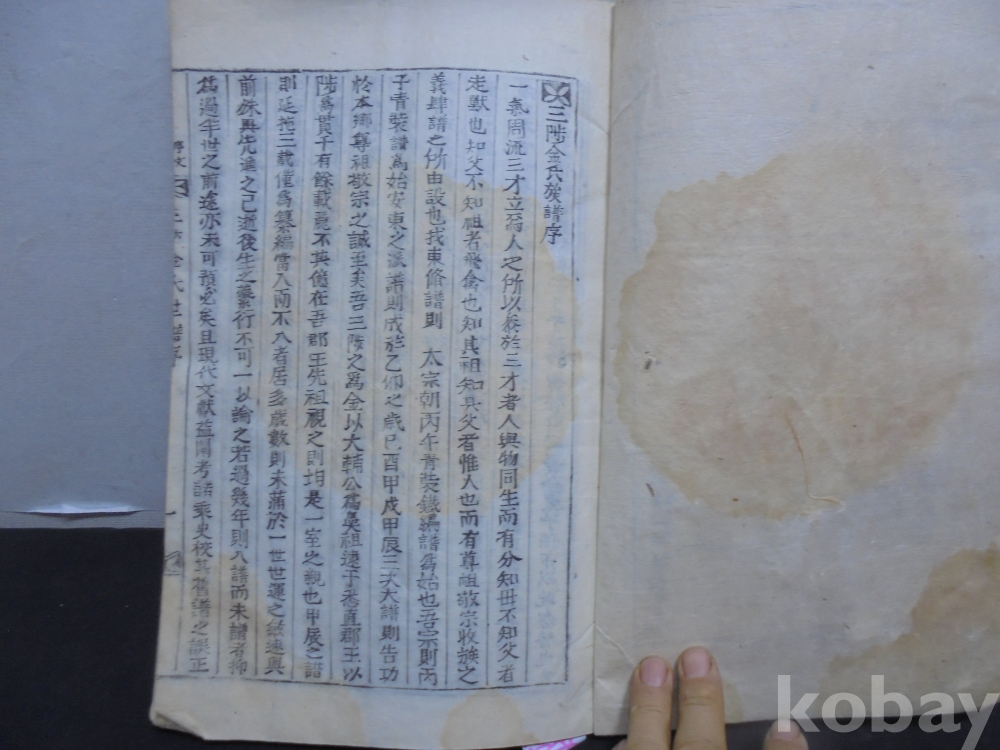 三陟金氏族譜序
一氣周流三才立焉人之所以參於三才者人與物同生而有分知母不知父者
走獸也知父不知祖者飛禽也知其祖知其父者惟人也而有尊祖敬宗收族之
義肆譜之所由設也我東脩譜則 太宗朝丙午青裝鐵編譜爲始也吾宗則丙
子青裝譜爲始安東之派譜則成於乙卯之歲己酉甲戌甲辰三次大譜則告功
於本鄉尊祖敬宗之誠至矣吾三陟之爲金以大輔公爲鼻祖逮于悉直郡王以
陟爲貫千有餘載 不其億在吾郡王先祖視之則均是一室之親也甲辰之譜
即延拖三載僅爲纂編當入而不入者居多歲數則未蒲於一世世運之 速與
前 再先進之已逝後生之 行不可一以論之若過幾年則入譜而未譜者抑
爲過半世之前途亦未可預必矣且現代文獻益開考諸乘史校其舊譜之誤正
三陟金氏世譜序
一
kobay